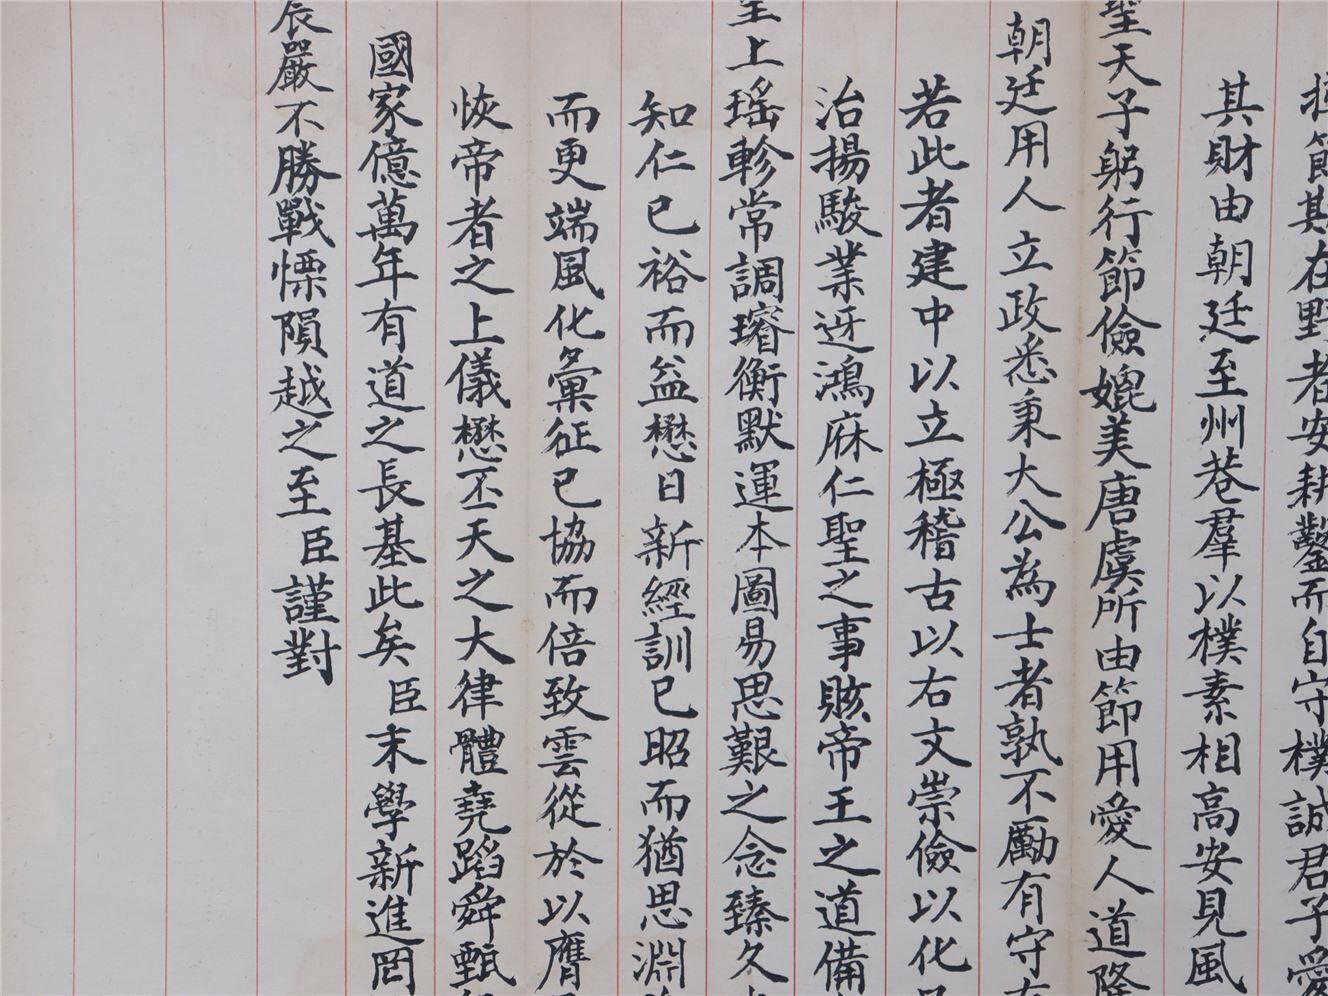 節斯在野者安耕鑿而自守樸誠君子愛
其財由朝廷至州巷羣以樸素相高安見風
聖天子躬行節儉媲美唐虞所由節用愛人道隆
朝廷用人立政悉秉大公為士者孰不勵有守
若此者建中以立極稽古以右文崇儉以化
治揚駿業迓鴻庥仁聖之事賅帝王之道備
至上瑤軫常調璿衡默運本圖易思艱之念臻久
知仁已裕而益懋日新經訓已昭而猶思淵
而更端風化彙征已協而倍致雲從於以膺
恢帝者之上儀懋丕天之大律體堯蹈舜甄
國家億萬年有道之長基此矣臣末學新進罔
宸嚴不勝戰慄隕越之至臣謹對